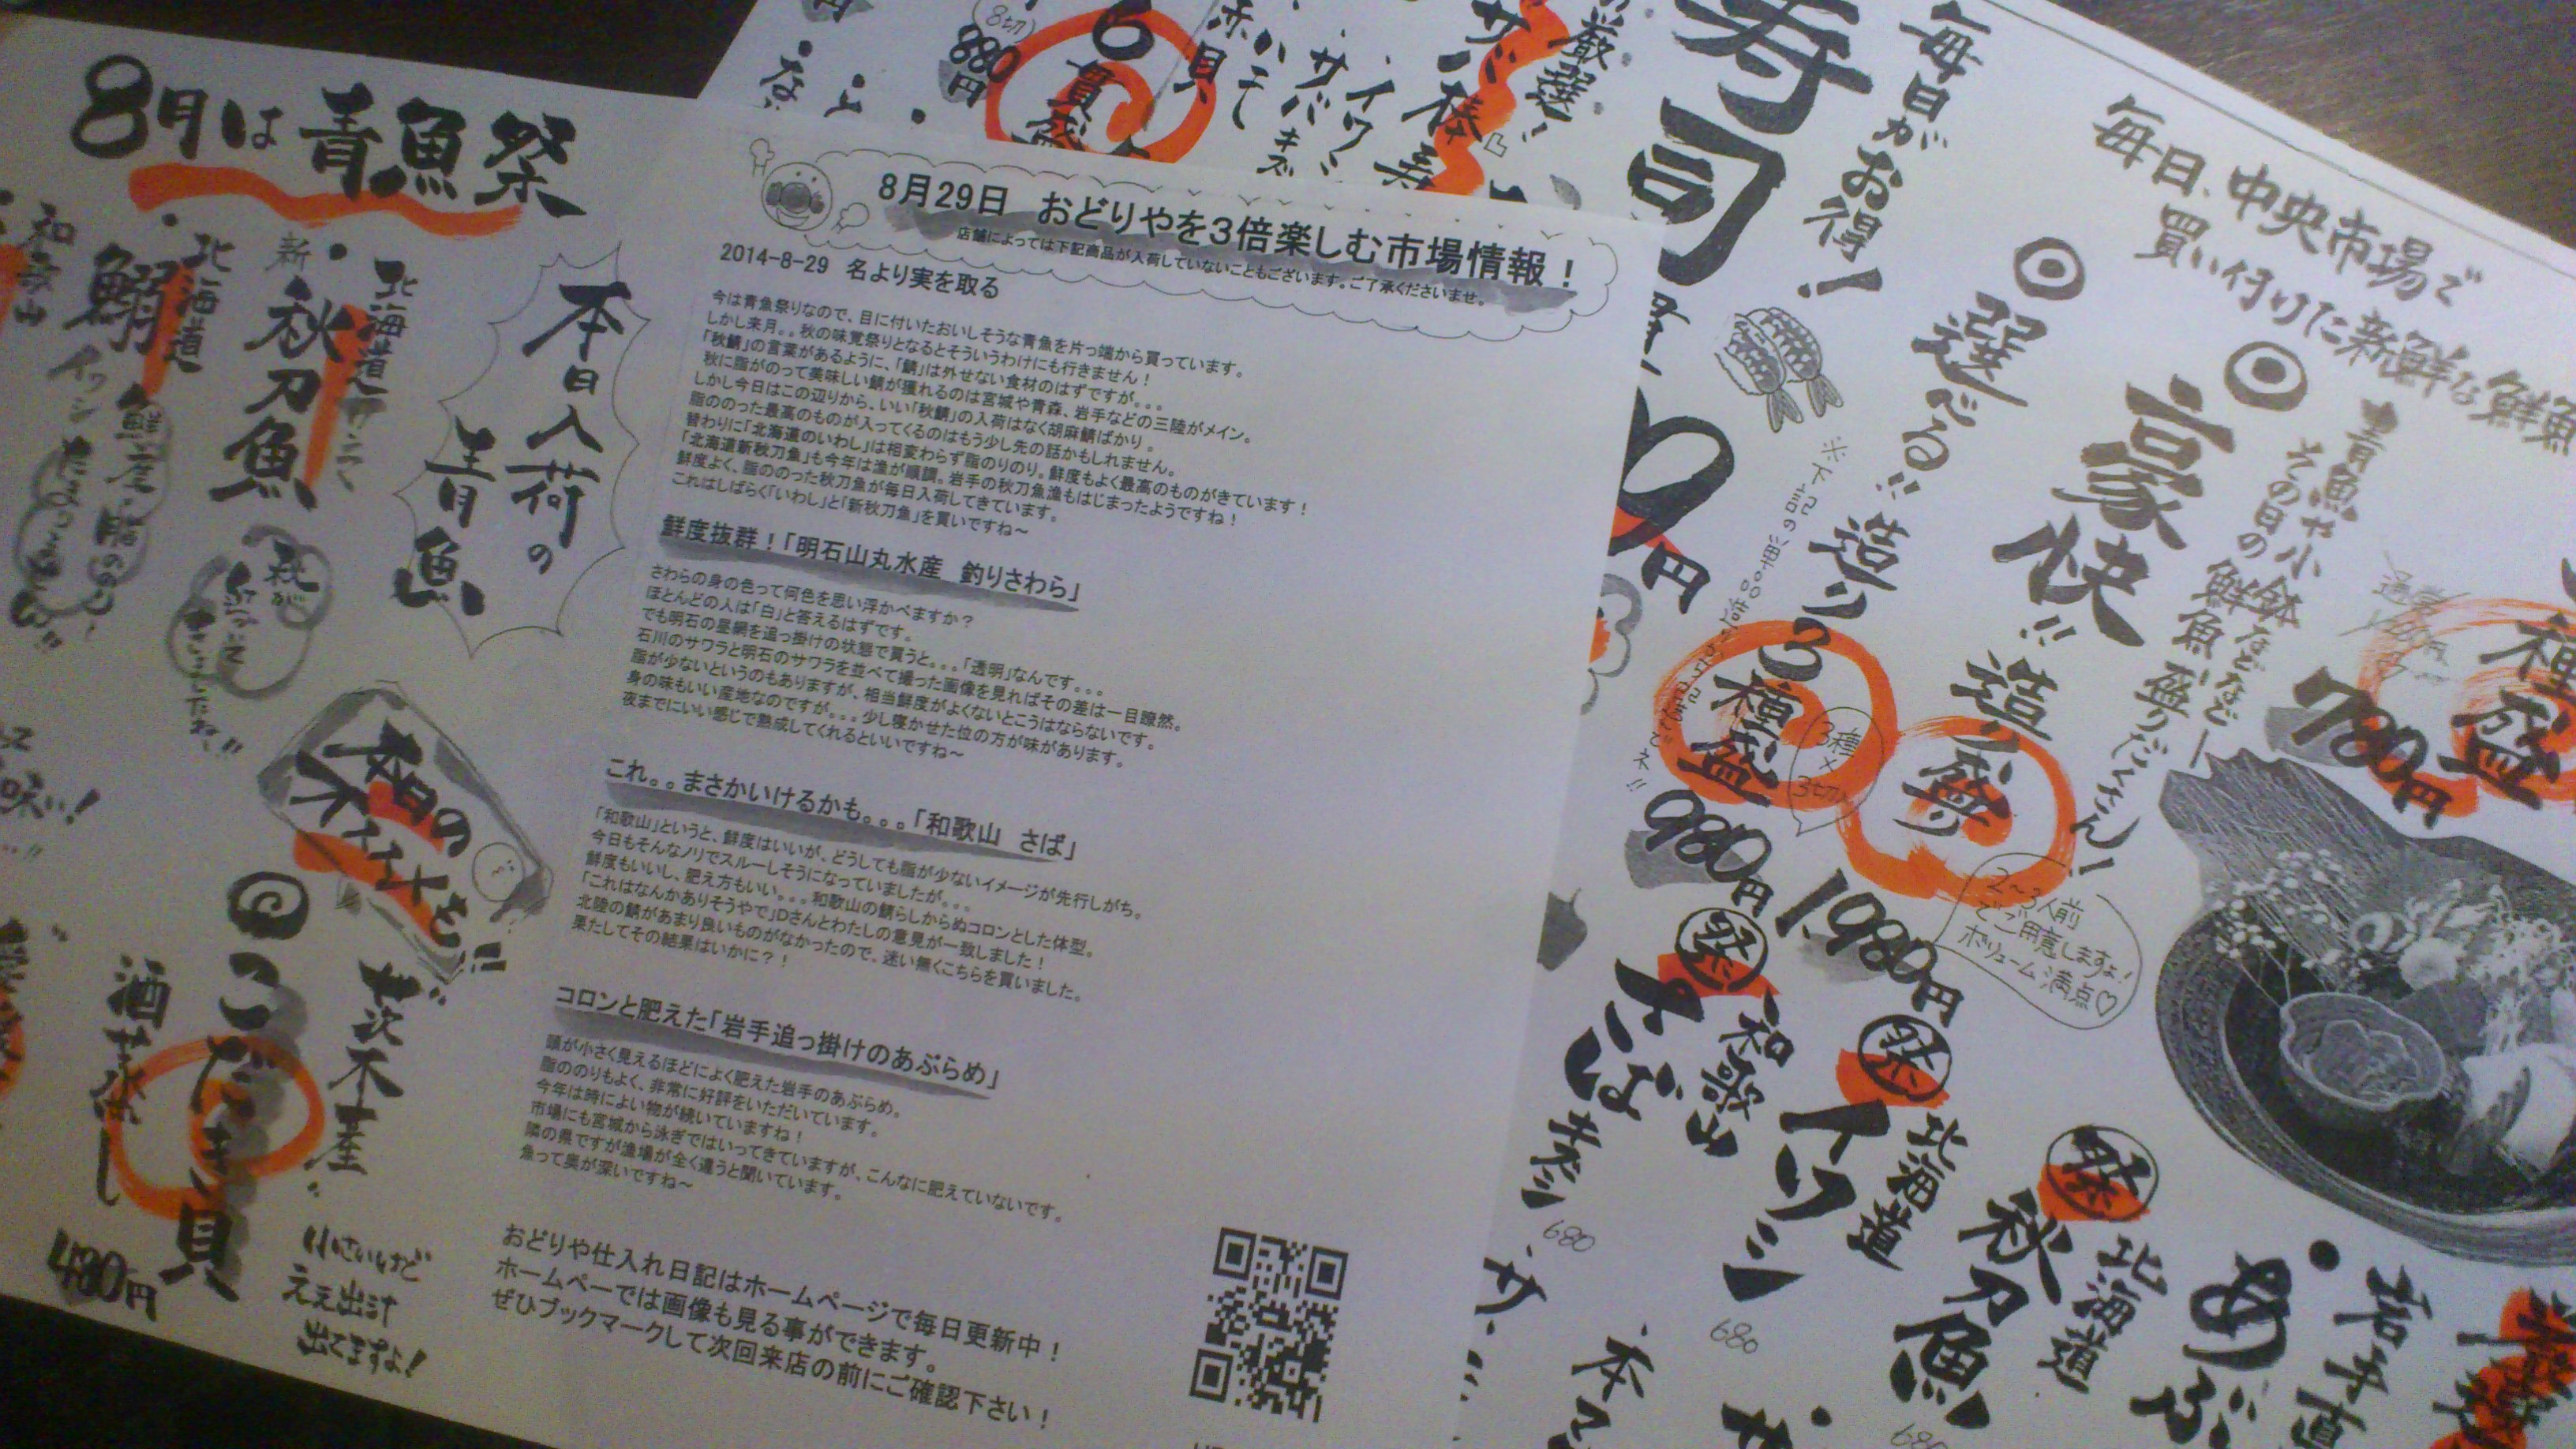 8月は青魚祭
本日入荷の
青魚
北海道サンマ
新秋刀魚
北海道
鰯
イワシ
和歌山
本日の
オススメを!!
茨木産
こだま貝
酒蒸し
480円
小さいけど
ええ出汁
出てますよ!
8月29日 おどりやを3倍楽しむ市場情報!
店舗によっては下記商品が入荷していないこともございます。ご了承くださいませ。
2014-8-29 名より実を取る
今は青魚祭りなので、目に付いたおいしそうな青魚を片っ端から買っています。
しかし来月。。秋の味覚祭りとなるとそういうわけにも行きません!
「秋鯖」の言葉があるように、「鯖」は外せない食材のはずですが。。。
秋に脂がのって美味しい鯖が獲れるのは宮城や青森、岩手などの三陸がメイン。
しかし今日はこの辺りから、いい「秋鯖」の入荷はなく胡麻鯖ばかり。
脂ののった最高のものが入ってくるのはもう少し先の話かもしれません。
替わりに「北海道のいわし」は相変わらず脂のりのり。鮮度もよく最高のものがきています!
「北海道新秋刀魚」も今年は漁が順調。岩手の秋刀魚漁もはじまったようですね!
鮮度よく、脂ののった秋刀魚が毎日入荷してきています。
これはしばらく「いわし」と「新秋刀魚」を買いですね～
鮮度抜群!「明石山丸水産 釣りさわら」
さわらの身の色って何色を思い浮かべますか?
ほとんどの人は「白」と答えるはずです。
でも明石の昼網を追っ掛けの状態で買うと。。。「透明」なんです。。。
石川のサワラと明石のサワラを並べて撮った画像を見ればその差は一目瞭然。
脂が少ないというのもありますが、相当鮮度がよくないとこうはならないです。
身の味もいい産地なのですが。。。少し寝かせた位の方が味があります。
夜までにいい感じで熟成してくれるといいですね～
これ。。まさかいけるかも。。。「和歌山 さば」
「和歌山」というと、鮮度はいいが、どうしても脂が少ないイメージが先行しがち。
今日もそんなノリでスルーしそうになっていましたが。。。
鮮度もいいし、肥え方もいい。。。和歌山の鯖らしからぬコロンとした体型。
「これはなんかありそうやで」Dさんとわたしの意見が一致しました!
北陸の鯖があまり良いものがなかったので、迷い無くこちらを買いました。
果たしてその結果はいかに?!
コロンと肥えた「岩手追っ掛けのあぶらめ」
頭が小さく見えるほどによく肥えた岩手のあぶらめ。
脂ののりもよく、非常に好評をいただいています。
今年は時によい物が続いていますね!
市場にも宮城から泳ぎではいってきていますが、こんなに肥えていないです。
隣の県ですが漁場が全く違うと聞いています。
魚って奥が深いですね～
おどりや仕入れ日記はホームページで毎日更新中!
ホームペーでは画像も見る事ができます。
ぜひブックマークして次回来店の前にご確認下さい!
厳選!
サバ棒寿
・イワシ
・サバキズ
赤貝
6貫盛
(8切)
880円
毎日がお得!
寿司
0円
毎日、中央市場で
買い付けた新鮮な鮮魚
◎選べる!!造り3種盛
3種×3切
980円
◎豪快!!造り盛り
青魚や小鉢などなど―
その日の鮮魚、盛りだくさん!
1,980円
2～3人前
でご用意しますよ!
ボリューム満点♡
種盛
780円
祭 和歌山
さば
キズシ 680
祭 北海道
イワシ 680
祭 北海道
秋刀魚 680
岩手直
あぶ